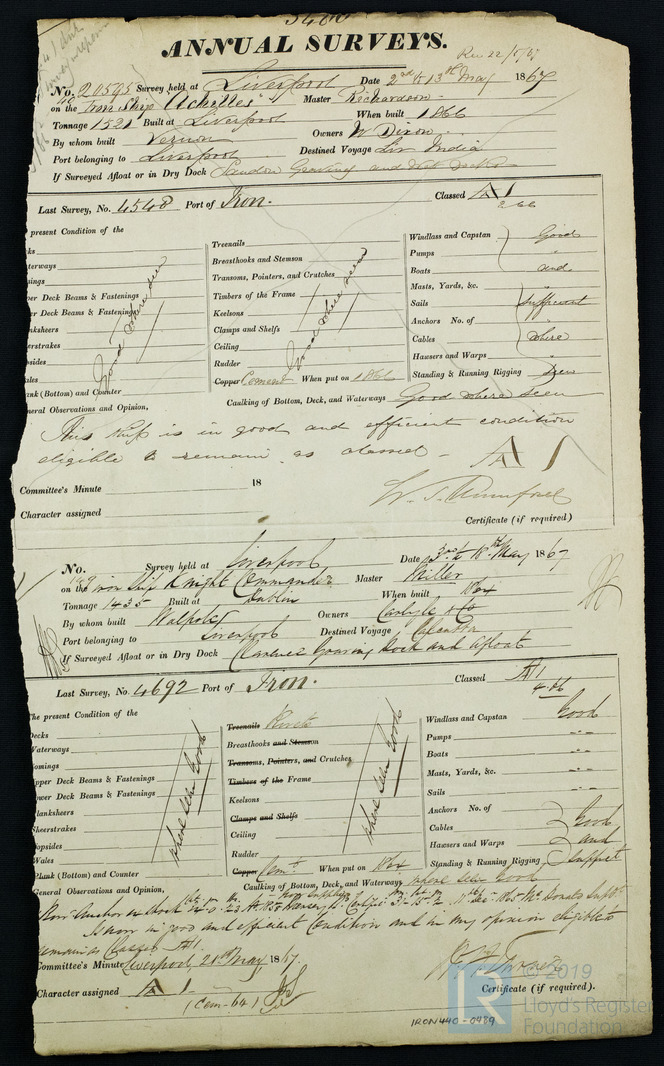 ANNUAL SURVEYS.
Rec 22/5/67
No. 20595 Survey held at Liverpool Date 2nd to 13th May 1867
on the Iron Ship "Achilles" Master Richardson
Tonnage 1521 Built at Liverpool When built 1866
By whom built Vernon Owners W Dixon
Port belonging to Liverpool Destined Voyage Liv India
If Surveyed Afloat or in Dry Dock Sandon Graving and Wet Docks
Last Survey, No. 4548 Port of Iron. Classed A1
2.66
present Condition of the
Upper Deck Beams & Fastenings
Good where seen
(Bottom) and Counter
General Observations and Opinion,
Treenails
Breasthooks and Stemson
Transoms, Pointers, and Crutches
Timbers of the Frame
Keelsons
Clamps and Shelfs
Ceiling
Rudder
Good where seen
Copper Cement When put on 1866
Windlass and Capstan Good
Pumps
Boats and
Masts, Yards, &c.
Sails sufficient
Anchors No. of
Cables where
Hawsers and Warps
Standing & Running Rigging seen
Caulking of Bottom, Deck, and Waterways Good where seen
This ship is in good and efficient condition
eligible to remain as classed - A1
Committee's Minute 18
Character assigned
Certificate (if required)
No. Survey held at Liverpool Date 3rd to 18th May 1867
on the iron ship Knight Commander Master Miller
Tonnage 1435 Built at Dublin When built 1864
By whom built Walpole Owners Carlyle & Co
Port belonging to Liverpool Destined Voyage Calcutta
If Surveyed Afloat or in Dry Dock Clarence Graving Dock and afloat
Last Survey, No. 4692 Port of Iron. Classed A1
4.66
The present Condition of the
Decks
Waterways
Comings
Upper Deck Beams & Fastenings
Lower Deck Beams & Fastenings
Planksheers
Sheerstrakes
Topsides
Wales
Plank (Bottom) and Counter
where seen Good
General Observations and Opinion,
Treenails Rivets
Breasthooks and Stemson
Transoms, Pointers, and Crutches
Timbers of the Frame
Keelsons
Clamps and Shelfs
Ceiling
Rudder
where seen Good
Copper Cemt When put on 1864
Windlass and Capstan Good
Pumps
Boats
Masts, Yards, &c.
Sails
Anchors No. of
Cables Good
Hawsers and Warps and
Standing & Running Rigging
Caulking of Bottom, Deck, and Waterways where seen Good
Is now in good and efficient Condition and in my opinion eligible to
remain as Classed A1.
Committee's Minute Liverpool, 21st May 1867
Character assigned A1
(Cem-64)
Certificate (if required).
IRON440-0489
© 2019
LR
Lloyd's Register
Foundation